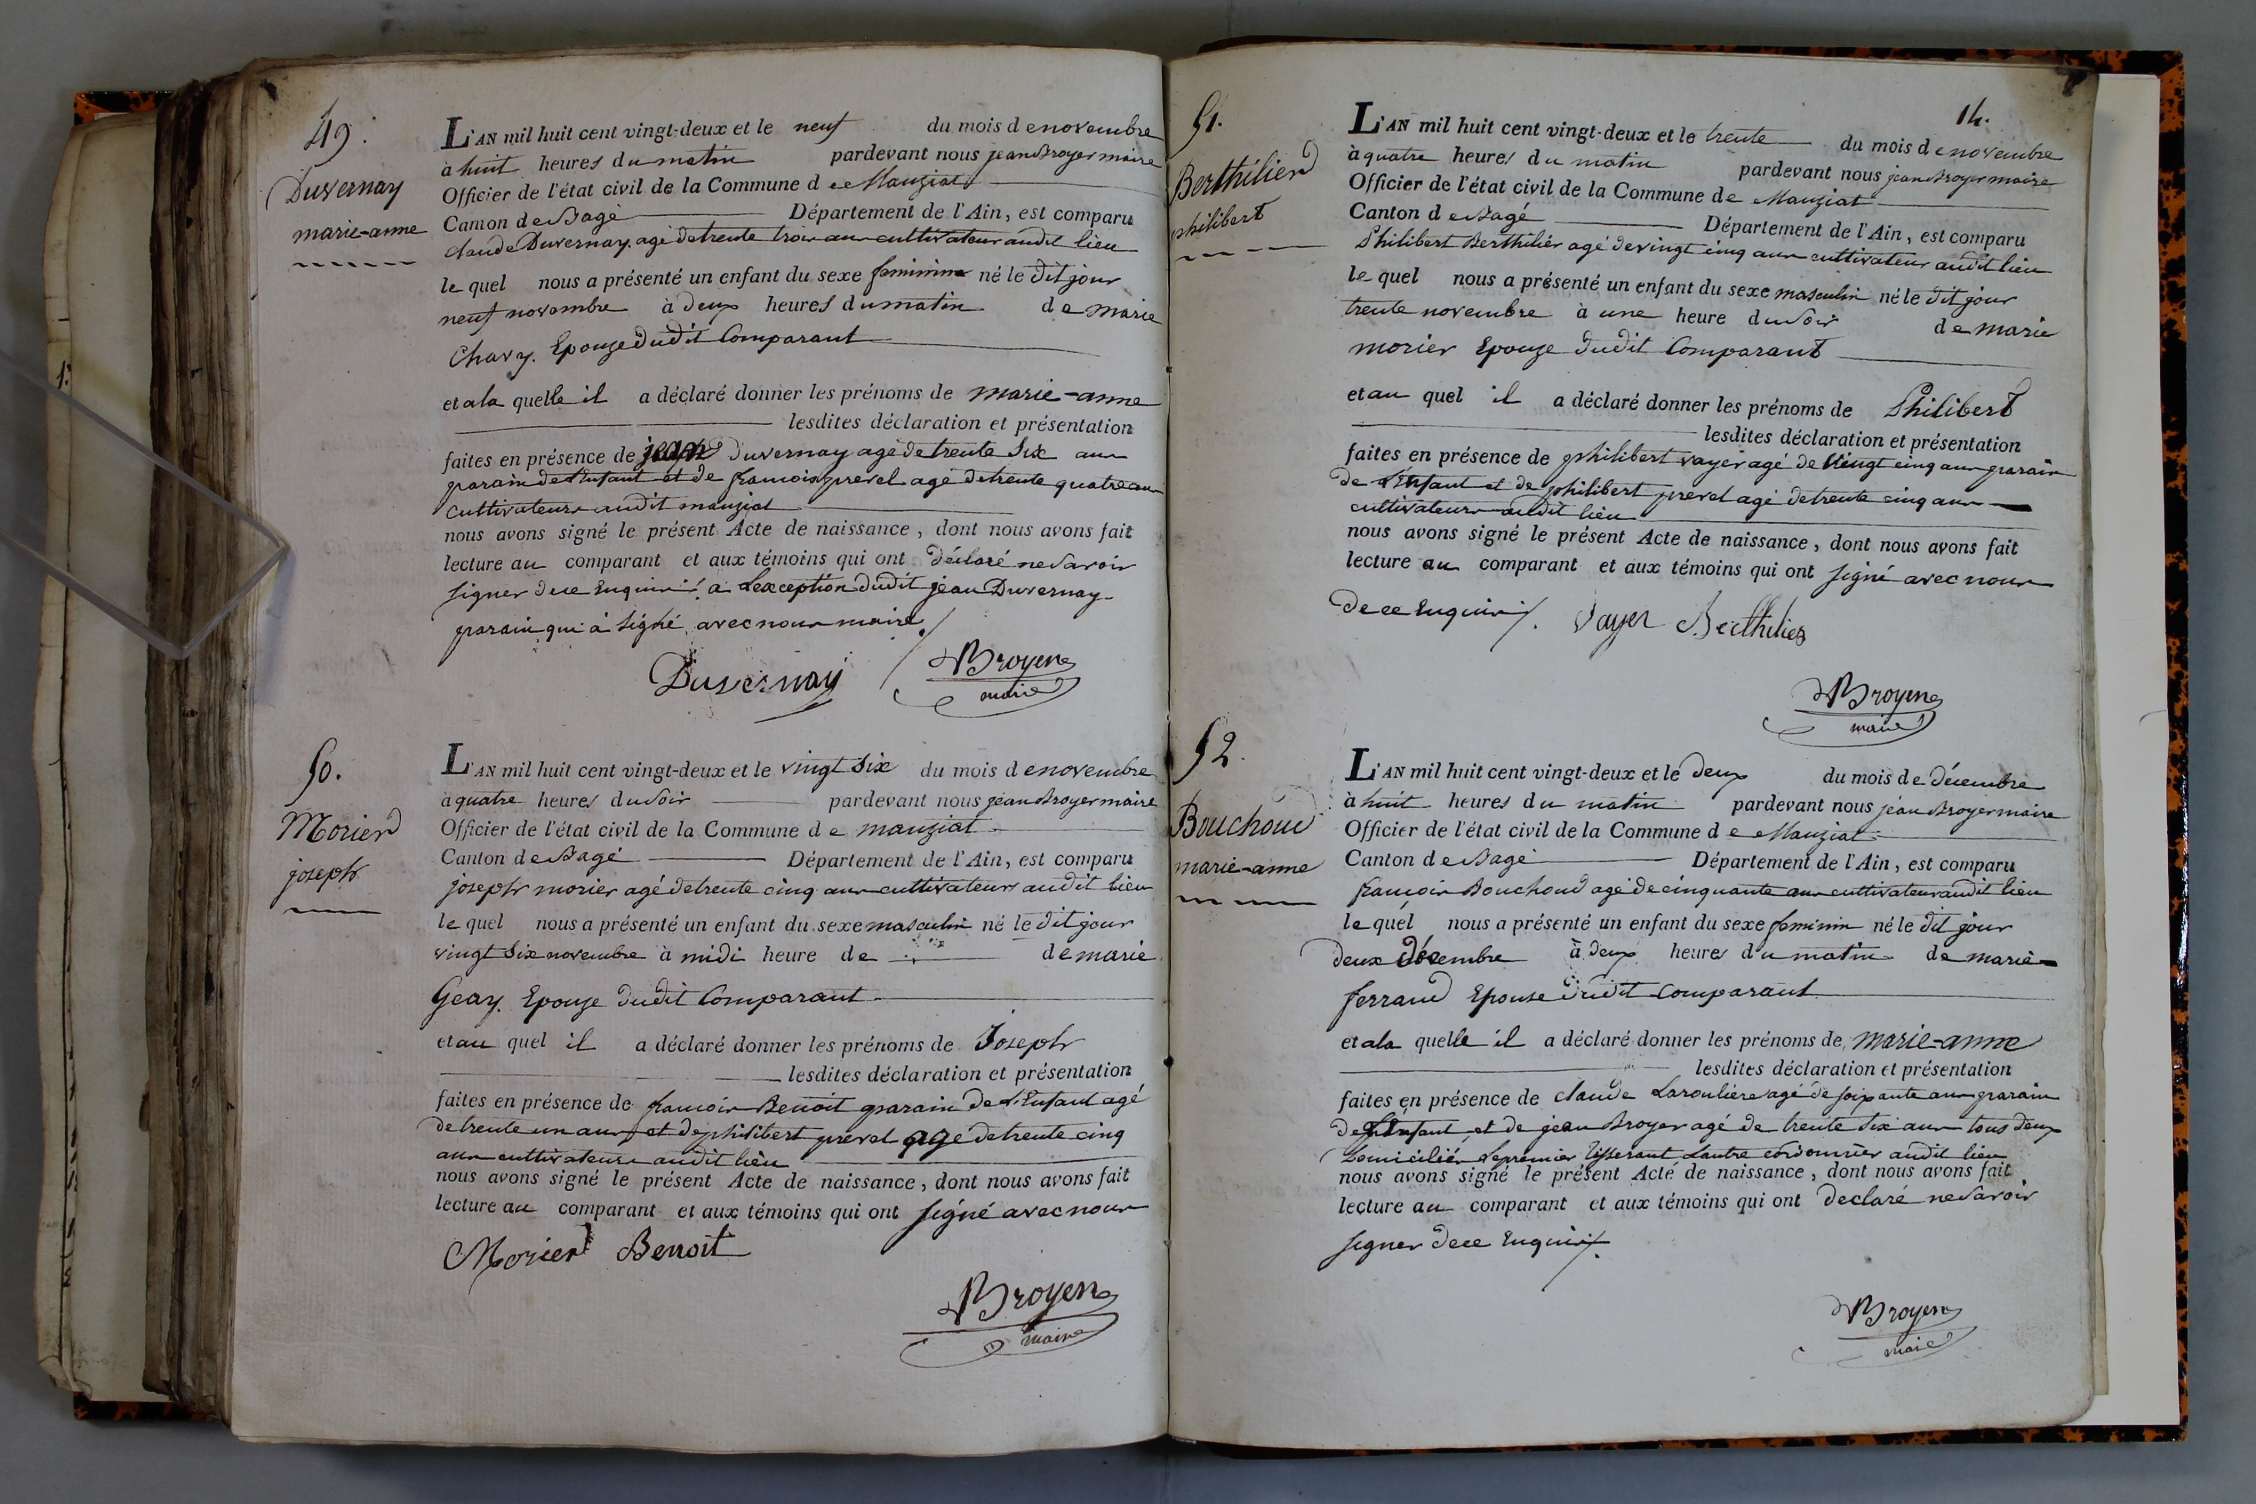 49.
Duvernay
marie-anne
L'AN mil huit cent vingt-deux et le neuf du mois de novembre
à huit heures du matin pardevant nous jean Broyer maire
Officier de l'état civil de la Commune de Manziat
Canton de Bagé Département de l'Ain, est comparu
claude Duvernay agé de trente trois ans cultivateur audit lieu
le quel nous a présenté un enfant du sexe feminin né le dit jour
neuf novembre à deux heures du matin de marie
Chavy. Epouze dudit Comparant
et a la quelle il a déclaré donner les prénoms de marie-anne
lesdites déclaration et présentation
faites en présence de jean Duvernay agé de trente Six ans
parain de l'Enfant et de francois prevel agé de trente quatre ans
cultivateurs audit manziat
nous avons signé le présent Acte de naissance, dont nous avons fait
lecture au comparant et aux témoins qui ont déclaré ne Savoir
signer de ce Enquis, à L'exception dudit jean Duvernay
parain qui à Signé avec nous maire
Duvernay Broyer
maire
50.
Morier
joseph
L'AN mil huit cent vingt-deux et le vingt Six du mois de novembre
à quatre heures du Soir pardevant nous jean Broyer maire
Officier de l'état civil de la Commune de manziat
Canton de Bagé Département de l'Ain, est comparu
joseph morier agé de trente cinq ans cultivateurs audit lieu
le quel nous a présenté un enfant du sexe masculin né le dit jour
vingt Six novembre à midi heure de de marie
Geay. Epouze dudit Comparant
et au quel il a déclaré donner les prénoms de Joseph
lesdites déclaration et présentation
faites en présence de francois Benoit parain de L'Enfant agé
de trente un ans et de philibert prevel agé de trente cinq
ans cultivateurs audit lieu
nous avons signé le présent Acte de naissance, dont nous avons fait
lecture au comparant et aux témoins qui ont signé avec nous
Morier Benoit
Broyer
maire
14.
51.
Berthilier
philibert
L'AN mil huit cent vingt-deux et le trente du mois de novembre
à quatre heures du matin pardevant nous jean Broyer maire
Officier de l'état civil de la Commune de Manziat
Canton de Bagé Département de l'Ain, est comparu
Philibert Berthilier agé de vingt cinq ans cultivateur audit lieu
le quel nous a présenté un enfant du sexe masculin né le dit jour
trente novembre à une heure du Soir de marie
morier Epouze dudit Comparant
et au quel il a déclaré donner les prénoms de Philibert
lesdites déclaration et présentation
faites en présence de philibert vayer agé de Vingt cinq ans parain
de L'Enfant et de philibert prevel agé de trente cinq ans
cultivateurs audit lieu
nous avons signé le présent Acte de naissance, dont nous avons fait
lecture au comparant et aux témoins qui ont signé avec nous
de ce Enquis. Vayer Berthilier
Broyer
maire
52.
Bouchoud
marie-anne
L'AN mil huit cent vingt-deux et le deux du mois de décembre
à huit heures du matin pardevant nous jean Broyer maire
Officier de l'état civil de la Commune de Manziat
Canton de Bagé Département de l'Ain, est comparu
francois Bouchoud agé de cinquante ans cultivateur audit lieu
le quel nous a présenté un enfant du sexe feminin né le dit jour
deux décembre à deux heures du matin de marie
ferrand Epouse dudit Comparant
et a la quelle il a déclaré donner les prénoms de marie-anne
lesdites déclaration et présentation
faites en présence de claude Laroulière agé de soixante ans parain
de L'Enfant et de jean Broyer agé de trente Six ans tous deux
Domiciliés Le premier tisserant Lautre cordonnier audit lieu
nous avons signé le présent Acte de naissance, dont nous avons fait
lecture au comparant et aux témoins qui ont declaré ne Savoir
signer de ce Enquis.
Broyer
maire